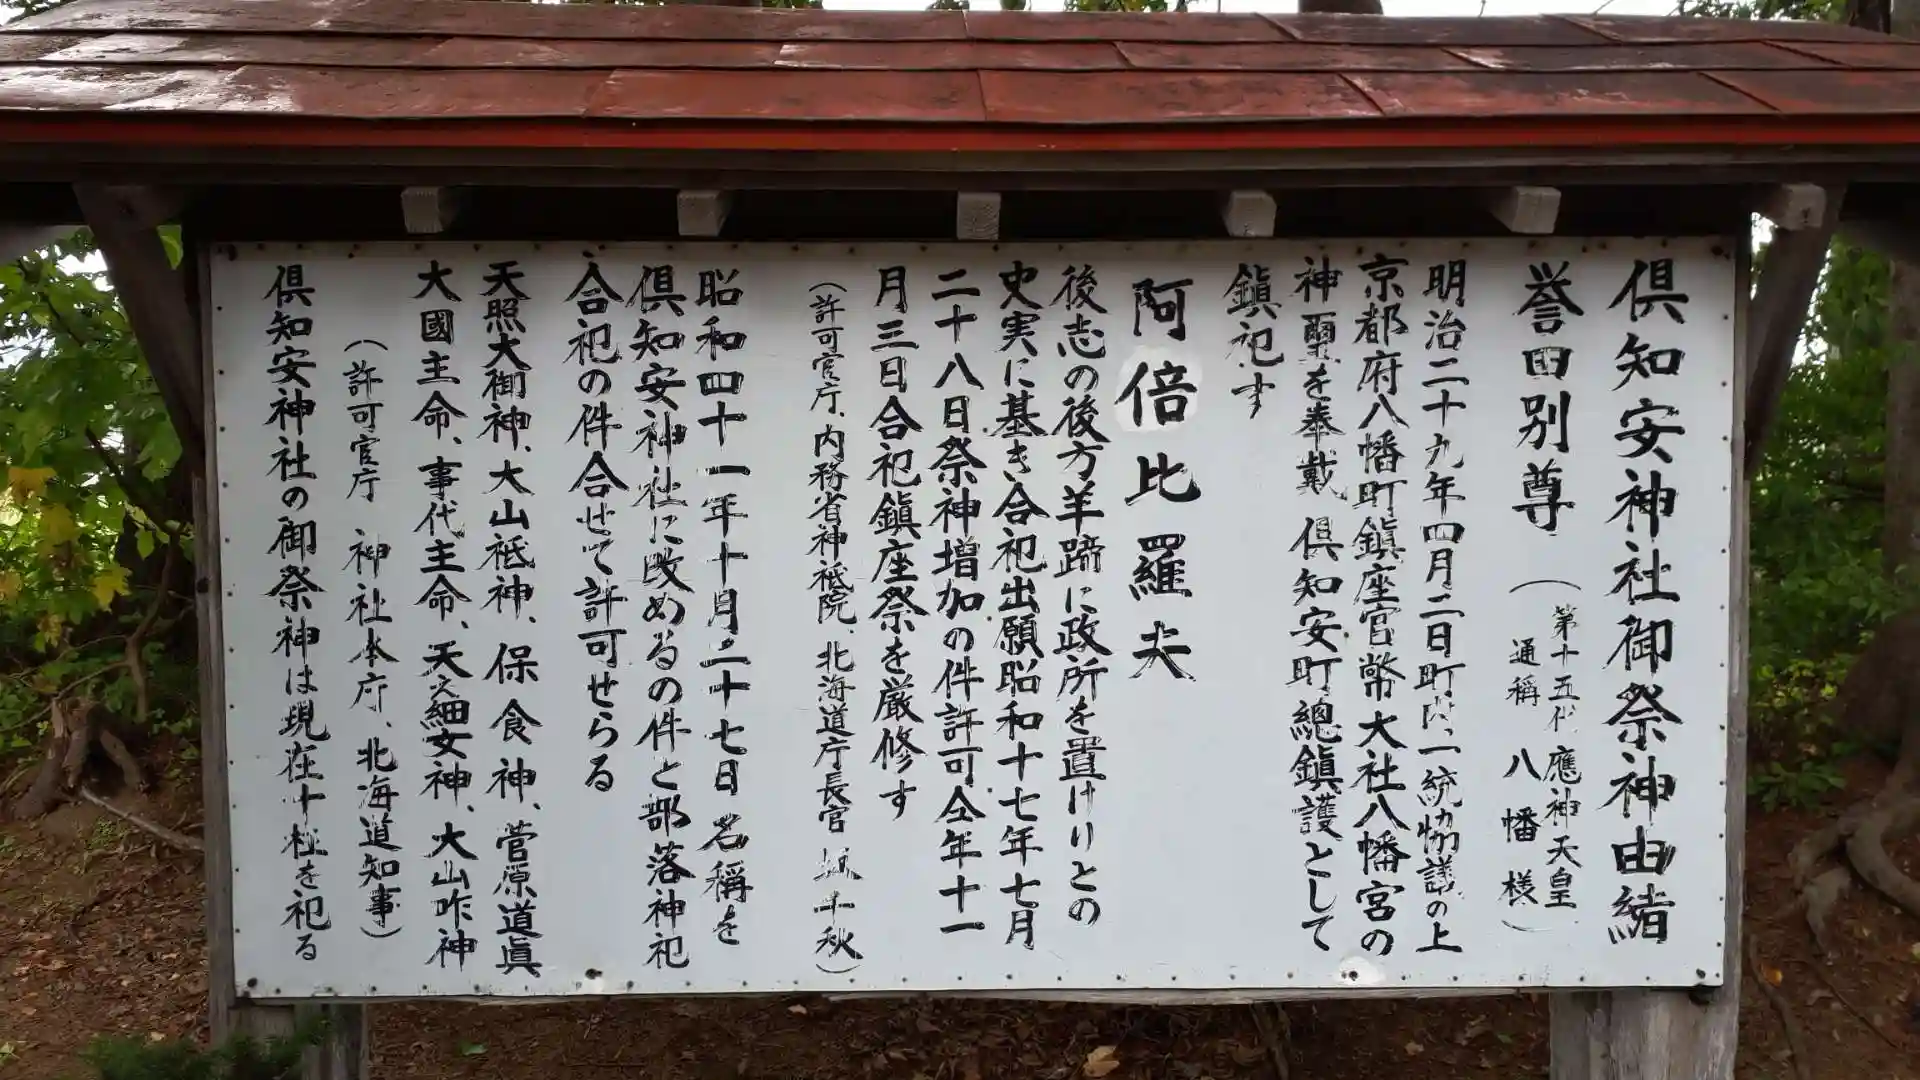 倶知安神社御祭神由緒
誉田別尊
（第十五代 應神天皇
通稱 八幡様）
明治二十九年四月二日町内一統協議の上
京都府八幡町鎮座官幣大社八幡宮の
神璽を奉戴 倶知安町總鎮護として
鎮祀す
阿倍比羅夫
後志の後方羊蹄に政所を置けりとの
史実に基き合祀出願昭和十七年七月
二十八日祭神増加の件許可仝年十一
月三日合祀鎮座祭を厳修す
（許可官庁、内務省神祗院、北海道庁長官 坂千秋）
昭和四十一年十月二十七日名稱を
倶知安神社に改めるの件と部落神祀
合祀の件合せて許可せらる
天照大御神、大山祗神、保食神、菅原道眞
大國主命、事代主命、天之細女神、大山咋神
（許可官庁 神社本庁、北海道知事）
倶知安神社の御祭神は現在十柱を祀る